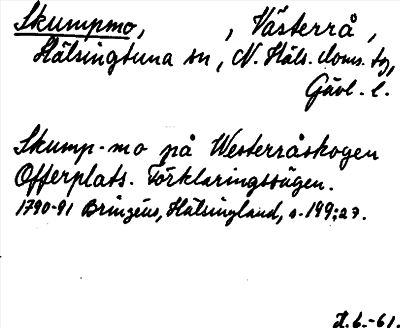 Skumpmo, , Västerrå,
Hälsingtuna sn, N. Häls. doms. tg,
Gävl. l.
Skump-mo på Westerråskogen
Offerplats. Förklaringssägen.
1790-91 Brinzéus, Hälsingland, s. 199; 27.
H. b. -61.